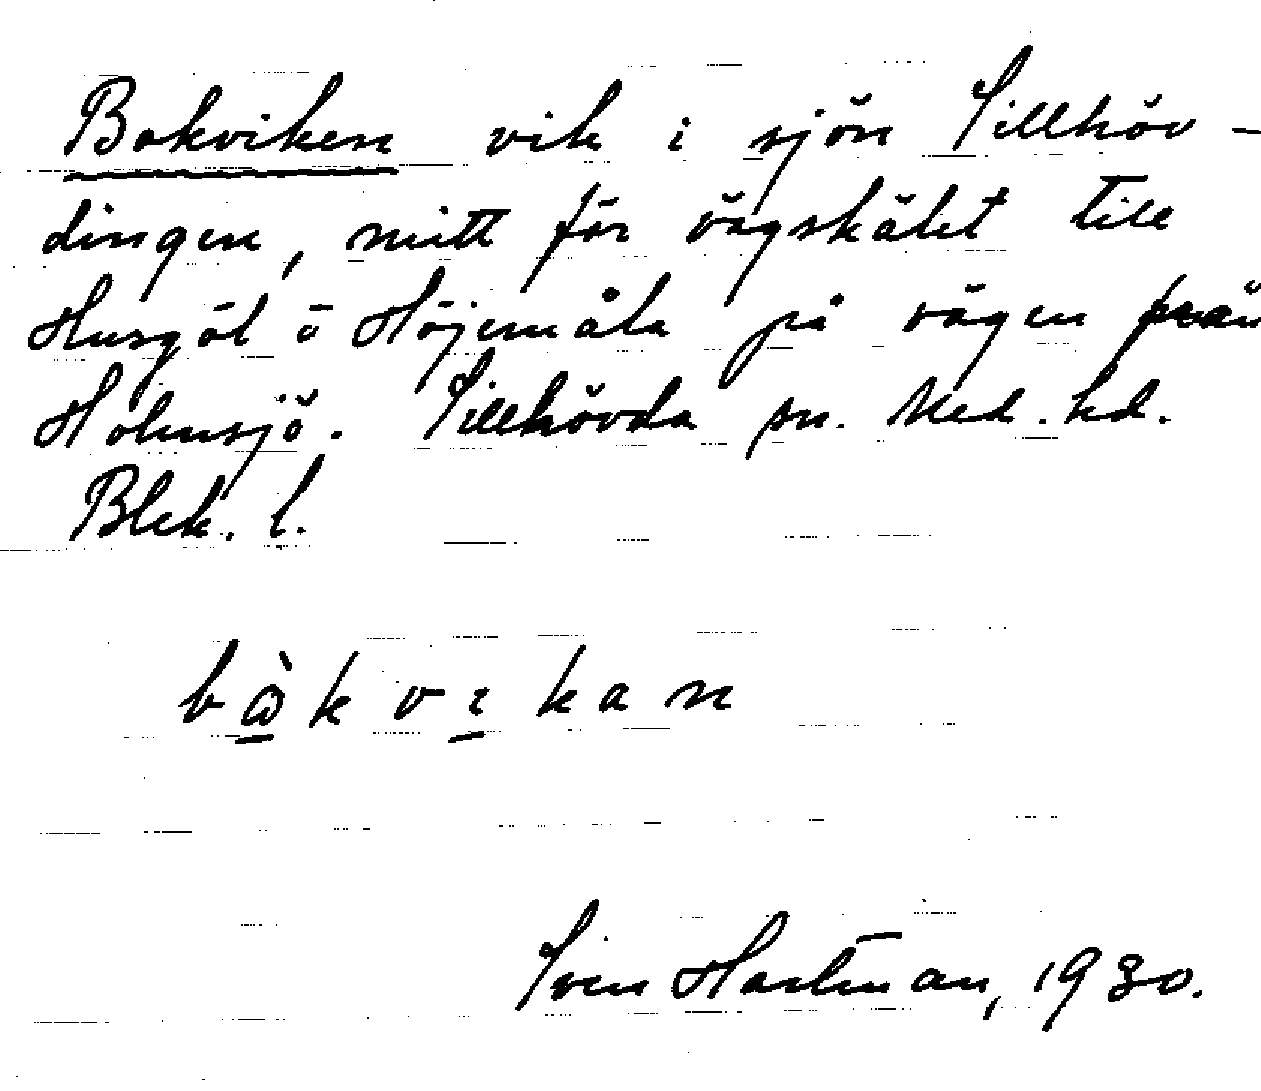 Bokviken vik i sjön Sillhöv-
dingen, mitt för vägskälet till
Husgöl o Höjemåla på vägen från
Holmsjö. Sillhövda sn. Med. hd.
Blek. l.
Sven Hartman, 1930.